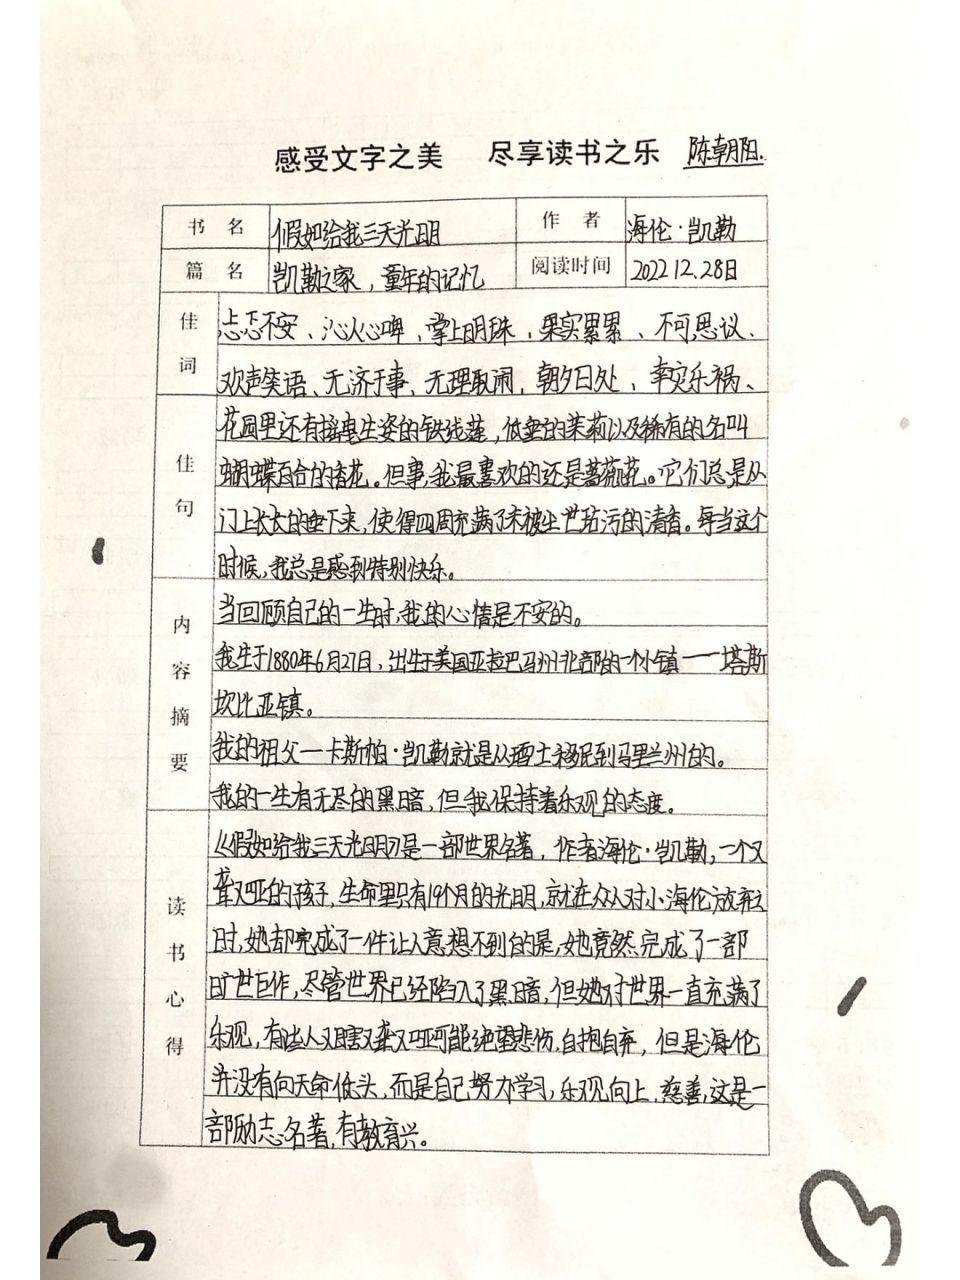 感受文字之美 尽享读书之乐 陈朝阳.
书名 假如给我三天光明 作者 海伦·凯勒
篇名 凯勒之家，童年的记忆 阅读时间 2022 12.28日
佳词
忐忑不安、沁人心啤、掌上明珠、果实累累、不可思议、
欢声笑语、无济于事、无理取闹、朝夕日处、幸灾乐祸、
佳句
花园里还有摇曳生姿的铁线莲，低垂的茉莉以及稀有的名叫
蝴蝶百合的香花。但事，我最喜欢的还是蔷薇花。它们总是从
门上长长的垂下来，使得四周充满了未被尘世玷污的清香。每当这个
时候，我总是感到特别快乐。
内容摘要
当回顾自己的一生时，我的心情是不安的。
我生于1880年6月27日，出生于美国亚拉巴马州北部的一个小镇——塔斯
坎比亚镇。
我的祖父—卡斯帕·凯勒就是从瑞士移民到马里兰州的。
我的一生有无尽的黑暗，但我保持着乐观的态度。
读书心得
《假如给我三天光明》是一部世界名著，作者海伦·凯勒，一个又
聋又哑的孩子，生命里只有19个月的光明，就在众人对小海伦放弃之
时，她却完成了一件让人意想不到的是，她竟然完成了一部
旷世巨作，尽管世界已经陷入了黑暗，但她对世界一直充满了
乐观，有些人又瞎又聋又哑可能绝望悲伤，自抱自弃，但是海伦
并没有向天命低头，而是自己努力学习，乐观向上，慈善，这是一
部励志名著，有教育兴。